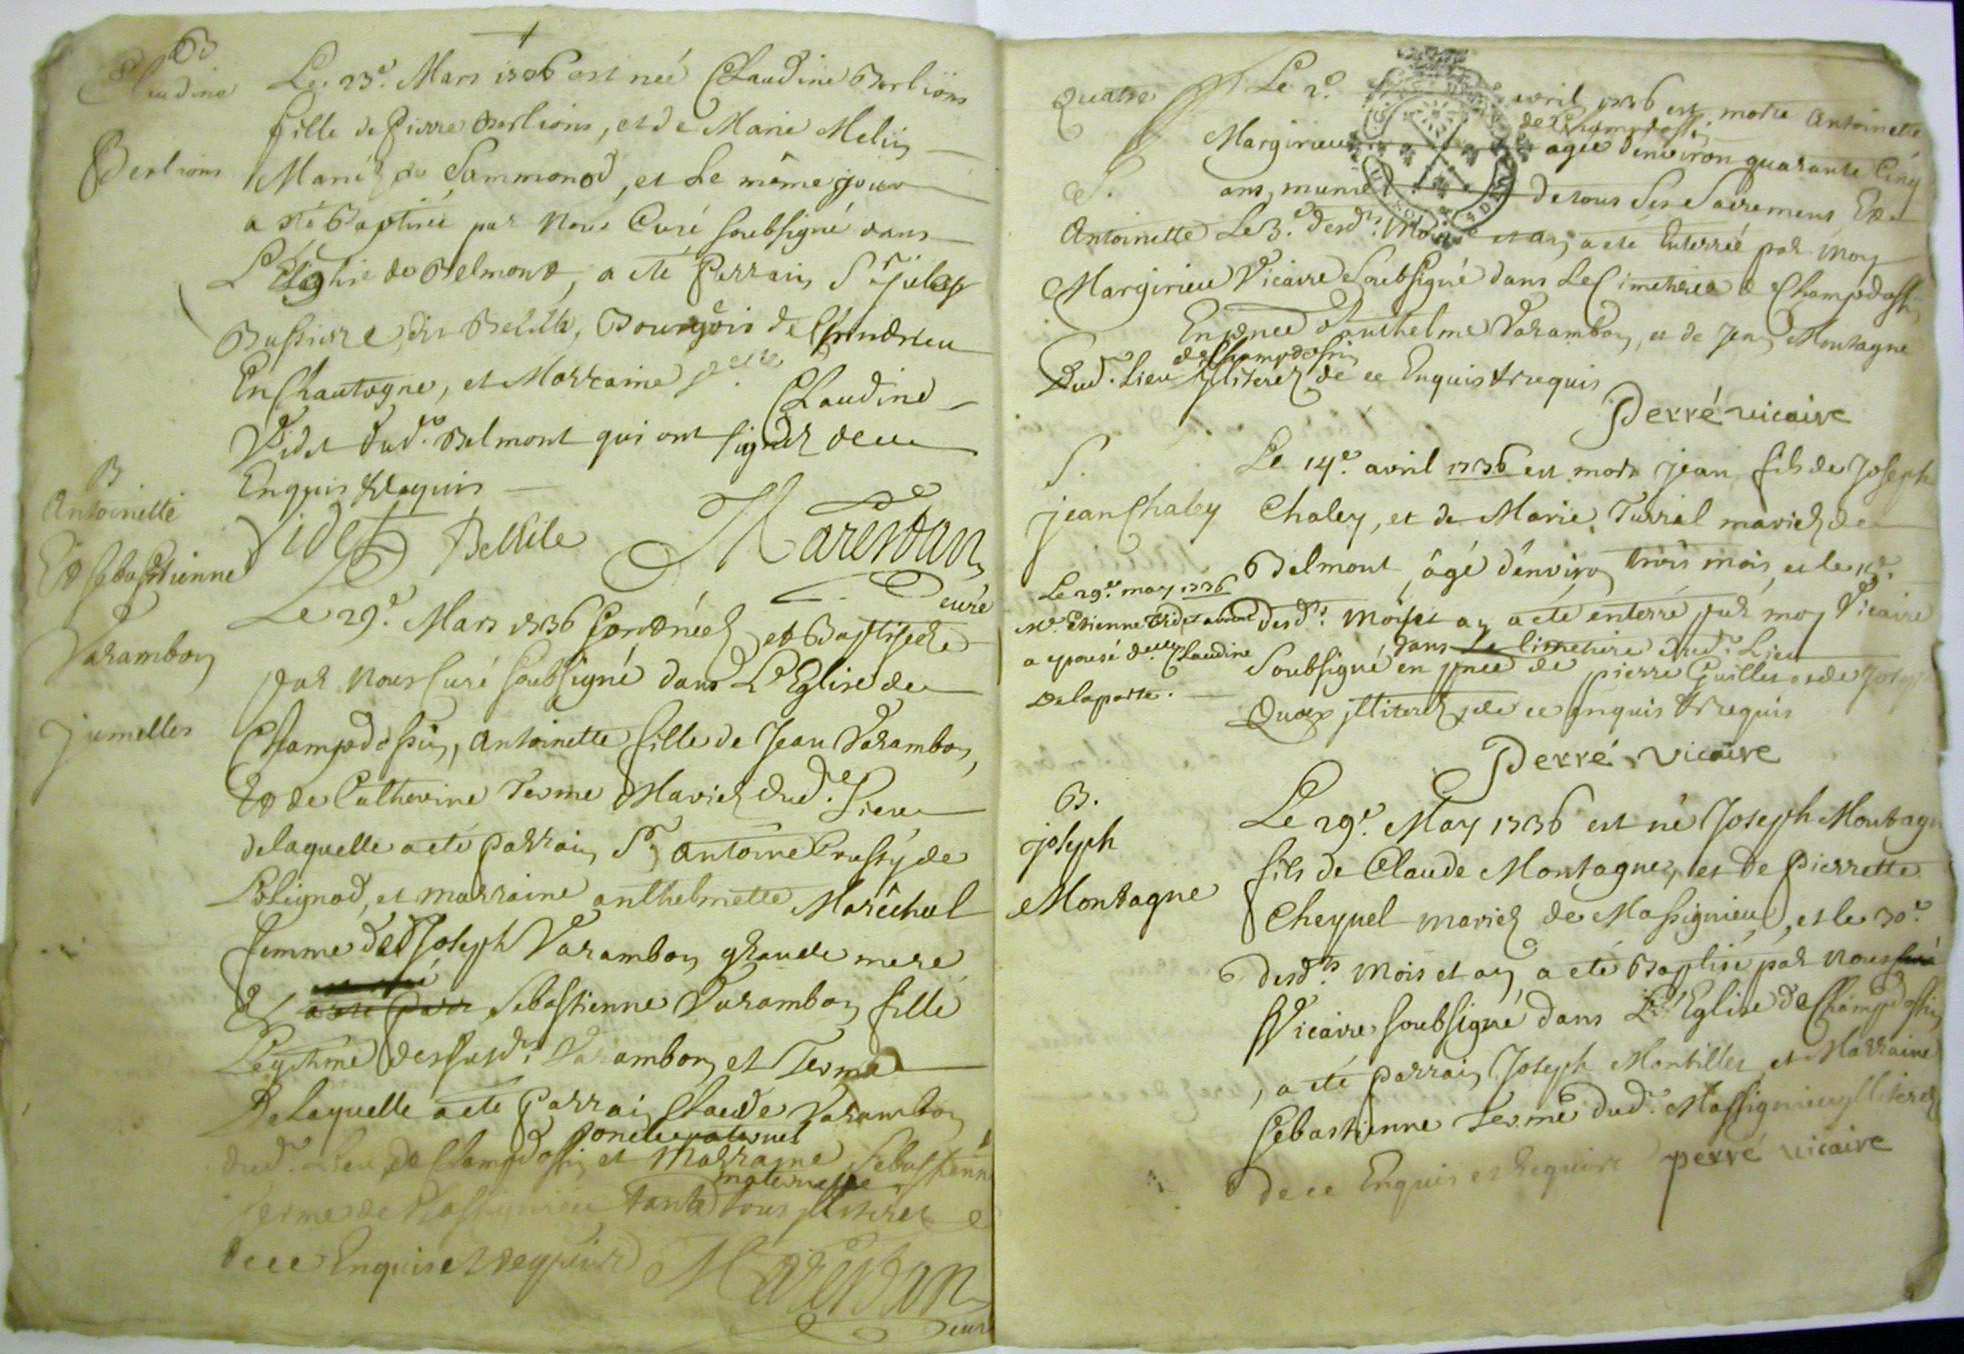 B
Claudine
Berlions
Le 23e. Mars 1736 est née Claudine Berlions
fille de Pierre Berlions, et de Marie Melin
Mariéz de Sammonod, et Le même jour
a été Baptisée par Nous Curé soubsigné dans
L'Eglise de Belmont, a été Parrain Sr.
Bussiere, dit Bellile, Bourgeois de Chindrieu
En Chautagne, et Marraine Claudine
Videt dud. Belmont qui ont signéz de ce
Enquis & Requis
Videt Bellile Marestan
curé
B
Antoinette
Et Sebastienne
Varambon
jumelles
Le 29e. Mars 1736 sont néez et Baptiséez
par Nous Curé soubsigné dans L'Eglise de
Champdossin, Antoinette fille de Jean Varambon,
Et de Catherine Terme Mariéz dud. Lieu
delaquelle a été parrain Sr. Antoine Crussy de
Lolignod, et marraine anthelmette Maréchal
femme de Joseph Varambon grande mere
Et Sebastienne Varambon fille
Legitime dessusd. Varambon et Terme
De laquelle a été Parrain Claude Varambon
oncle paternel
dud. Lieu de Champdossin et Marraine Sebastienne
maternelle
Terme de Massignieu tante tous illiterez
de ce Enquis et Requis Marestan
curé
quatre
S.
Antoinette
Margirieu
Le 2e. avril 1736 est morte Antoinette
de Champdossin
Margirieu agée d'environ quarante Cinq
ans, munie de tous Ses Sacremens Et
Le 3. desd. Mois et an, a été Enterrée par Moy
Vicaire Soubsigné dans Le Cimetiere de Champdossin,
En pnce d'anthelme Varambon, et de Jean Montagne
de Champdossin
Dud. Lieu illiterez de ce Enquis & requis
Perré vicaire
S.
jean Chaley
Le 14e. avril 1736 est mort jean fils de Joseph
Chaley, et de Marie Turrel mariéz de
Belmont, âgé d'environ trois mois, et le
desd. Mois et an a été enterré par moy Vicaire
dans le Cimetiere dud. Lieu
Soubsigné en pnce de pierre Guillet et de
illiterez de ce enquis & requis
Perré vicaire
Le 29e. may 1736
Mr. Etienne Videt
a epousé delle Claudine
Delaporte.
B.
joseph
Montagne
Le 29e. May 1736 est né Joseph Montagne
fils de Claude Montagne, et de Pierrette
Cheynel mariéz de Massignieu, et le 30e.
desd. Mois et an a été Baptisé par Nous
Vicaire soubsigné dans L'Eglise de Champdossin
, a été parrain Joseph Montillet et Marraine
Sebastienne Terme dud. Massignieu illiterez
de ce Enquis et Requis perré vicaire